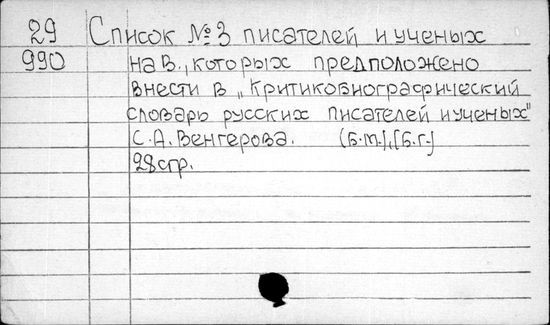 29 Список № 3 писателей и ученых
990 на В., которых предположено
внести в „Критикобиографический
словарь русских писателей и ученых"
С. А. Венгерова. (Б.м.), [Б.г.]
28 стр.